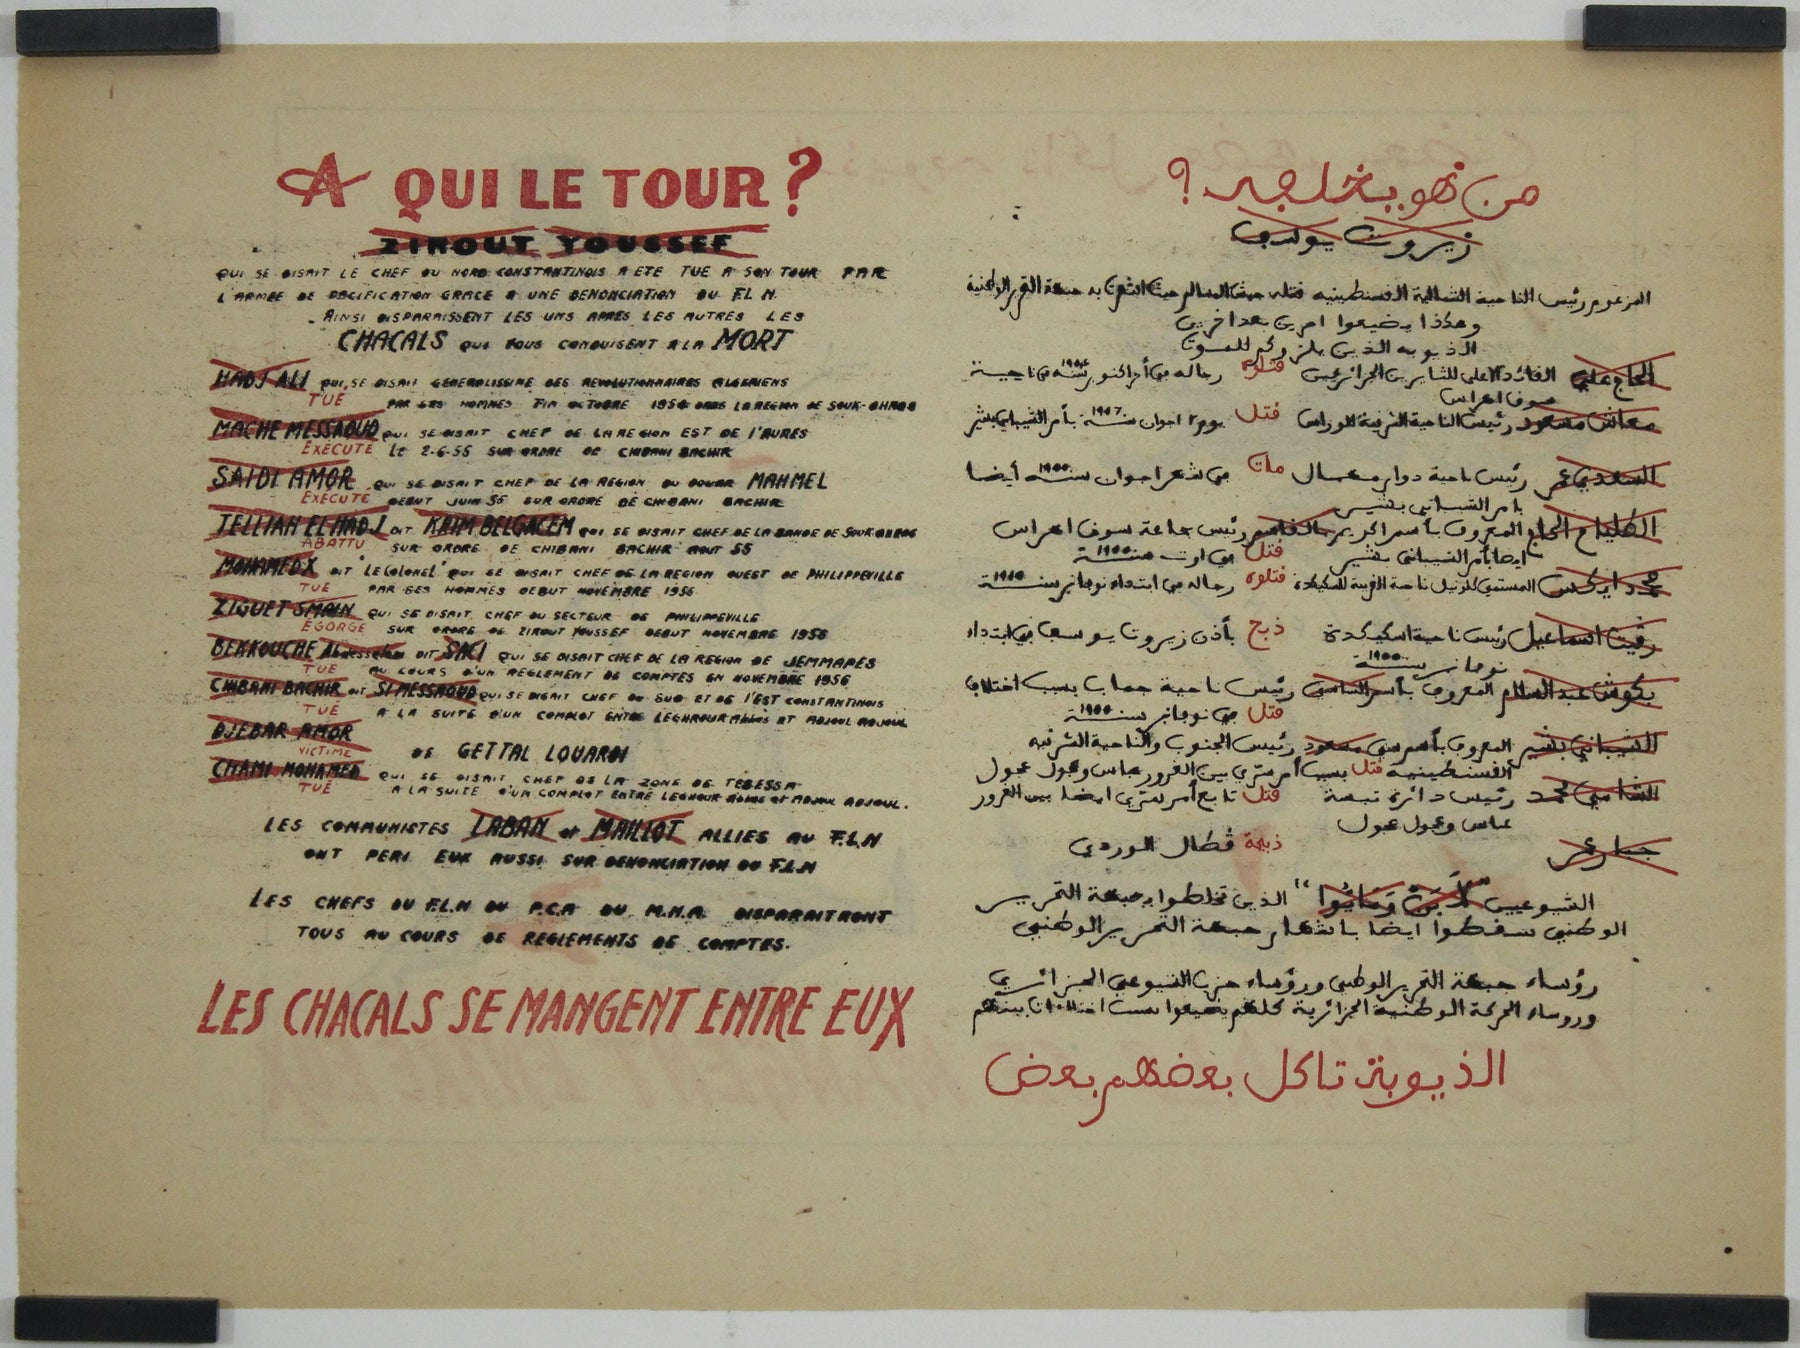 A QUI LE TOUR ?
ZIROUT YOUSSEF
QUI SE DISAIT LE CHEF DU NORD CONSTANTINOIS A ETE TUE A SON TOUR PAR
L'ARMEE DE PACIFICATION GRACE A UNE DENONCIATION DU F.L.N.
AINSI DISPARAISSENT LES UNS APRES LES AUTRES LES
CHACALS QUI VOUS CONDUISENT A LA MORT
HADJ ALI QUI SE DISAIT GENERALISSIME DES REVOLUTIONNAIRES ALGERIENS
TUÉ PAR SES HOMMES FIN OCTOBRE 1954 DANS LA REGION DE SOUK-AHRAS
MACHE MESSAOUD QUI SE DISAIT CHEF DE LA REGION EST DE l'AURES
EXECUTÉ LE 2-6-55 SUR ORDRE DE CHIBANI BACHIR
SAIDI AMOR QUI SE DISAIT CHEF DE LA REGION DU DOUAR MAHMEL
EXECUTE DEBUT JUIN 55 SUR ORDRE DE CHIBANI BACHIR
TELLIAH EL HADJ DIT KAIM BELGACEM QUI SE DISAIT CHEF DE LA BANDE DE SOUK AHRAS
ABATTU SUR ORDRE DE CHIBANI BACHIR AOUT 55
MOHAMED X DIT "LE COLONEL" QUI SE DISAIT CHEF DE LA REGION OUEST DE PHILIPPEVILLE
TUÉ PAR SES HOMMES DEBUT NOVEMBRE 1956
ZIGUET SMAIN QUI SE DISAIT CHEF DU SECTEUR DE PHILIPPEVILLE
EGORGÉ SUR ORDRE DE ZIROUT YOUSSEF DEBUT NOVEMBRE 1956
BEKKOUCHE Abdesselam DIT SACI QUI SE DISAIT CHEF DE LA REGION DE JEMMAPES
TUÉ AU COURS D'UN REGLEMENT DE COMPTES EN NOVEMBRE 1956
CHIBANI BACHIR DIT SI MESSAOUD QUI SE DISAIT CHEF DU SUD ET DE l'EST CONSTANTINOIS
TUÉ A LA SUITE D'UN COMPLOT ENTRE LEGHROUR ABBES ET ADJOUL ADJOUL
DJEBAR AMOR
VICTIME DE GETTAL LOUARDI
CHAMI MOHAMED QUI SE DISAIT CHEF DE LA ZONE DE TEBESSA
TUÉ A LA SUITE D'UN COMPLOT ENTRE LEGHOUR ABBES et ADJOUL ADJOUL.
LES COMMUNISTES LABAN et MAILLOT ALLIES AU F.L.N
ONT PERI EUX AUSSI SUR DENONCIATION DU F.L.N
LES CHEFS DU F.L.N DU P.C.A DU M.N.A. DISPARAITRONT
TOUS AU COURS DE REGLEMENTS DE COMPTES.
LES CHACALS SE MANGENT ENTRE EUX
زيروت يوسف
المزعوم رئيس الناحية الشمالية القسنطينيه قتله جيش السالم
وهكذا يضيعوا امرين بعد اخرين
الذيوبه الذين يلزوكم للموت
الحاج علي القائد الاعلى للثايرين الجزائريين قتلوه رجاله في أخر اكتوبر سنة في ناحية
سوق اهراس
معاش مسعود رئيس الناحية الشرقية للوراس قتل يوم ٢ اجوان سنة بأمر الشيباني بشير
السعدي عمر رئيس ناحية دوار مات في شهر اجوان سنة ١٩٥٥ أيضا
بامر الشيباني بشير
الطلياح الحاج المعروف بأسم رئيس جماعة سوق اهراس
قتل في اوت سنة ١٩٥٥ ايضا بأمر الشيباني بشير
المسمى كلرنيل ناحية الغربية للسكيكدة قتلوه رجاله في ابتداء نوفانبر سنة
اسماعيل رئيس ناحية اسكيكدة ذبح بأذن زيروت يوسف في ابتداء
نوفانبر سنة ١٩٥٥
بكوش عبد السلام المعروف بأسم الساسي رئيس ناحية جماب بسبب اختلاف
قتل في نوفانبر سنة ١٩٥٥
الشيباني بشير المعروف بأسم سي مسعود رئيس الجنوب والناحية الشرقيه
القسنطينيه قتل بسبب أمر سري بين الغرور عباس وعجول عجول
الشامي محمد رئيس دائرة تبسة قتل تابع أمر سري ايضا بين الغرور
عباس وعجول عجول
جبار عمر ذبحة قطال الوردي
الشيوعيين "لابن ومايوا" الذين تخلطوا بجبهة التحرير
الوطني سقطوا ايضا باشهار جبهة التحرير الوطني
رؤساء جبهة التحرير الوطني ورؤساء حزب الشيوعي الجزائري
وروساء الحركة الوطنية الجزائرية كلهم يضيعوا بسبب اختلافات بينهم
الذيوبة تاكل بعضهم بعض